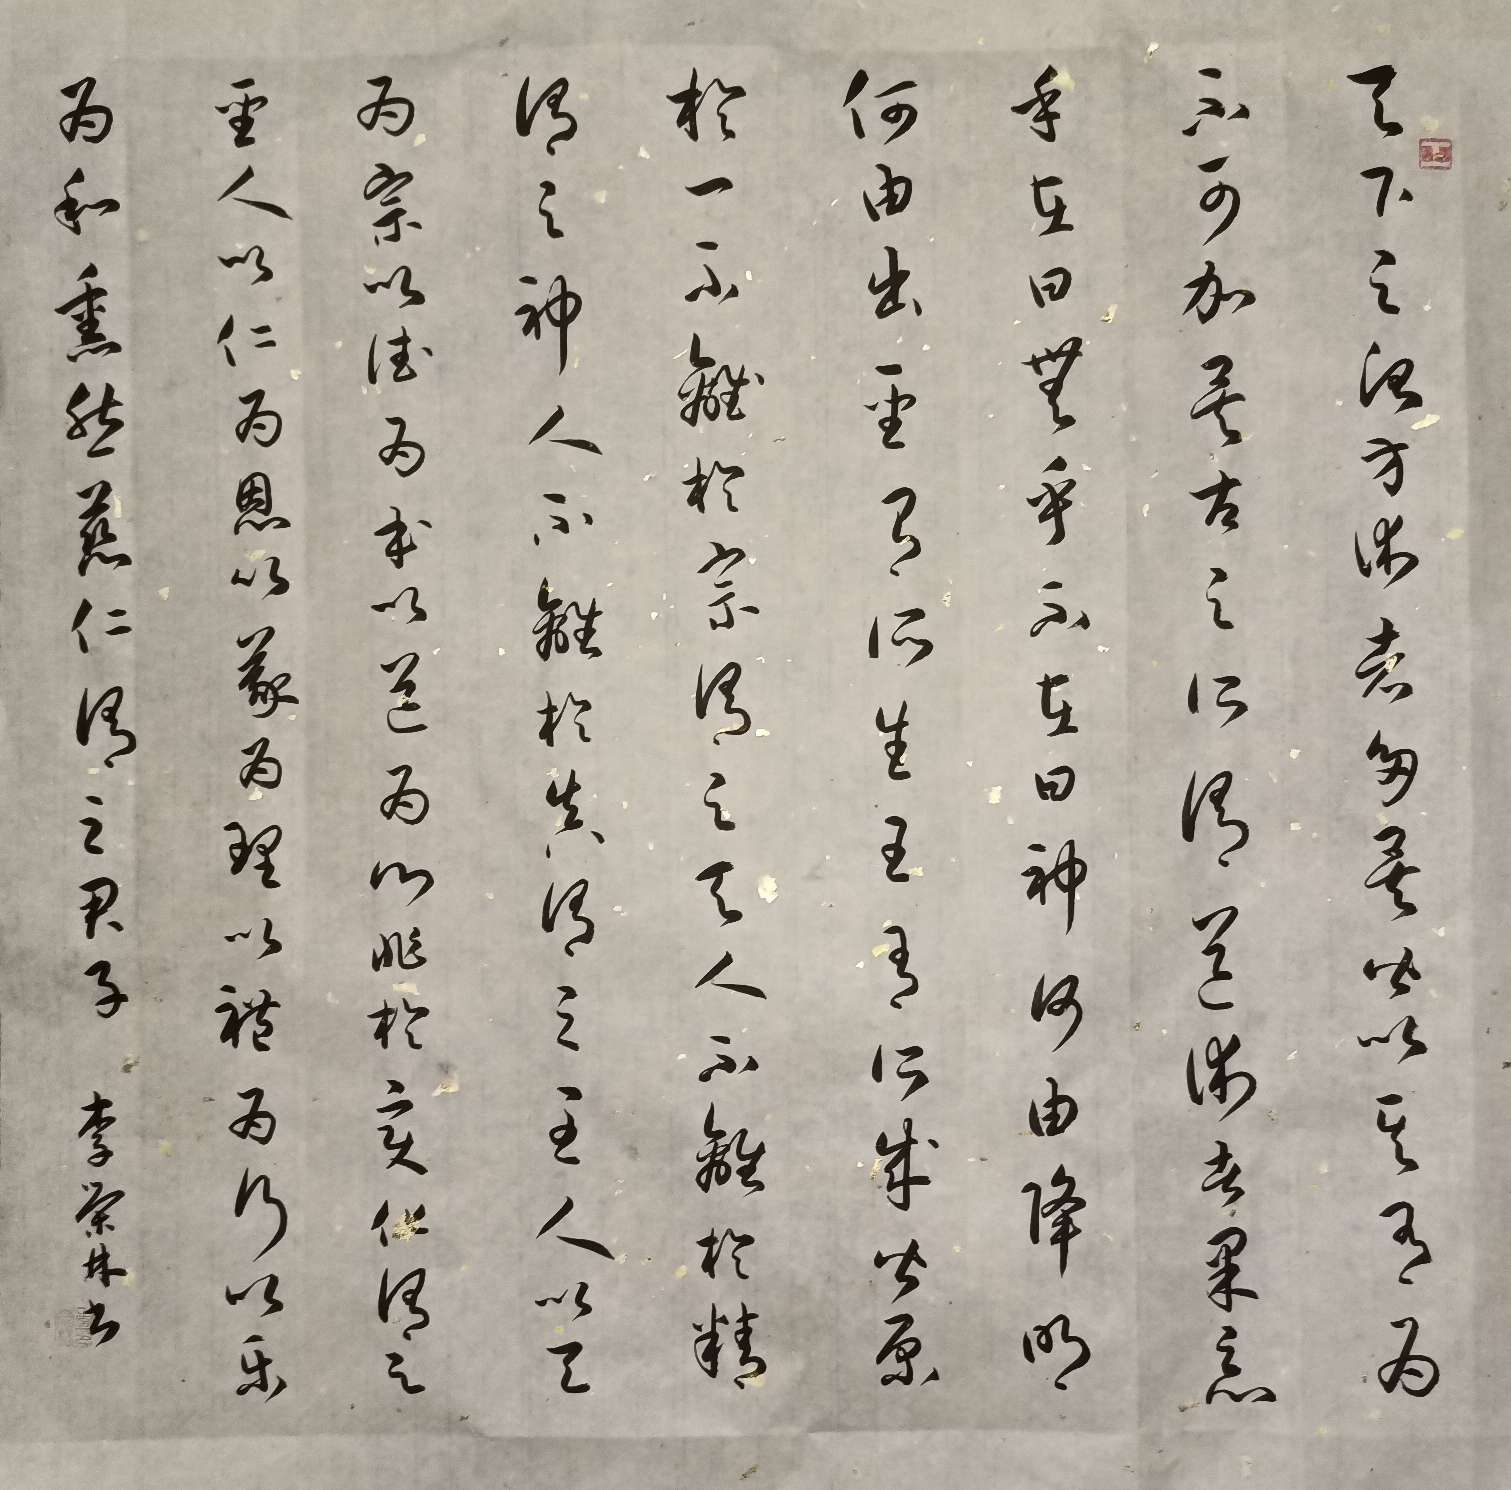 天下之治方術者多矣皆以其有為
不可加矣古之所謂道術者果惡
乎在曰無乎不在曰神何由降明
何由出聖有所生王有所成皆原
於一不離於宗謂之天人不離於精
謂之神人不離於真謂之至人以天
為宗以德為本以道為門兆於變化謂之
聖人以仁為恩以義為理以禮為行以樂
為和熏然慈仁謂之君子 李榮林書